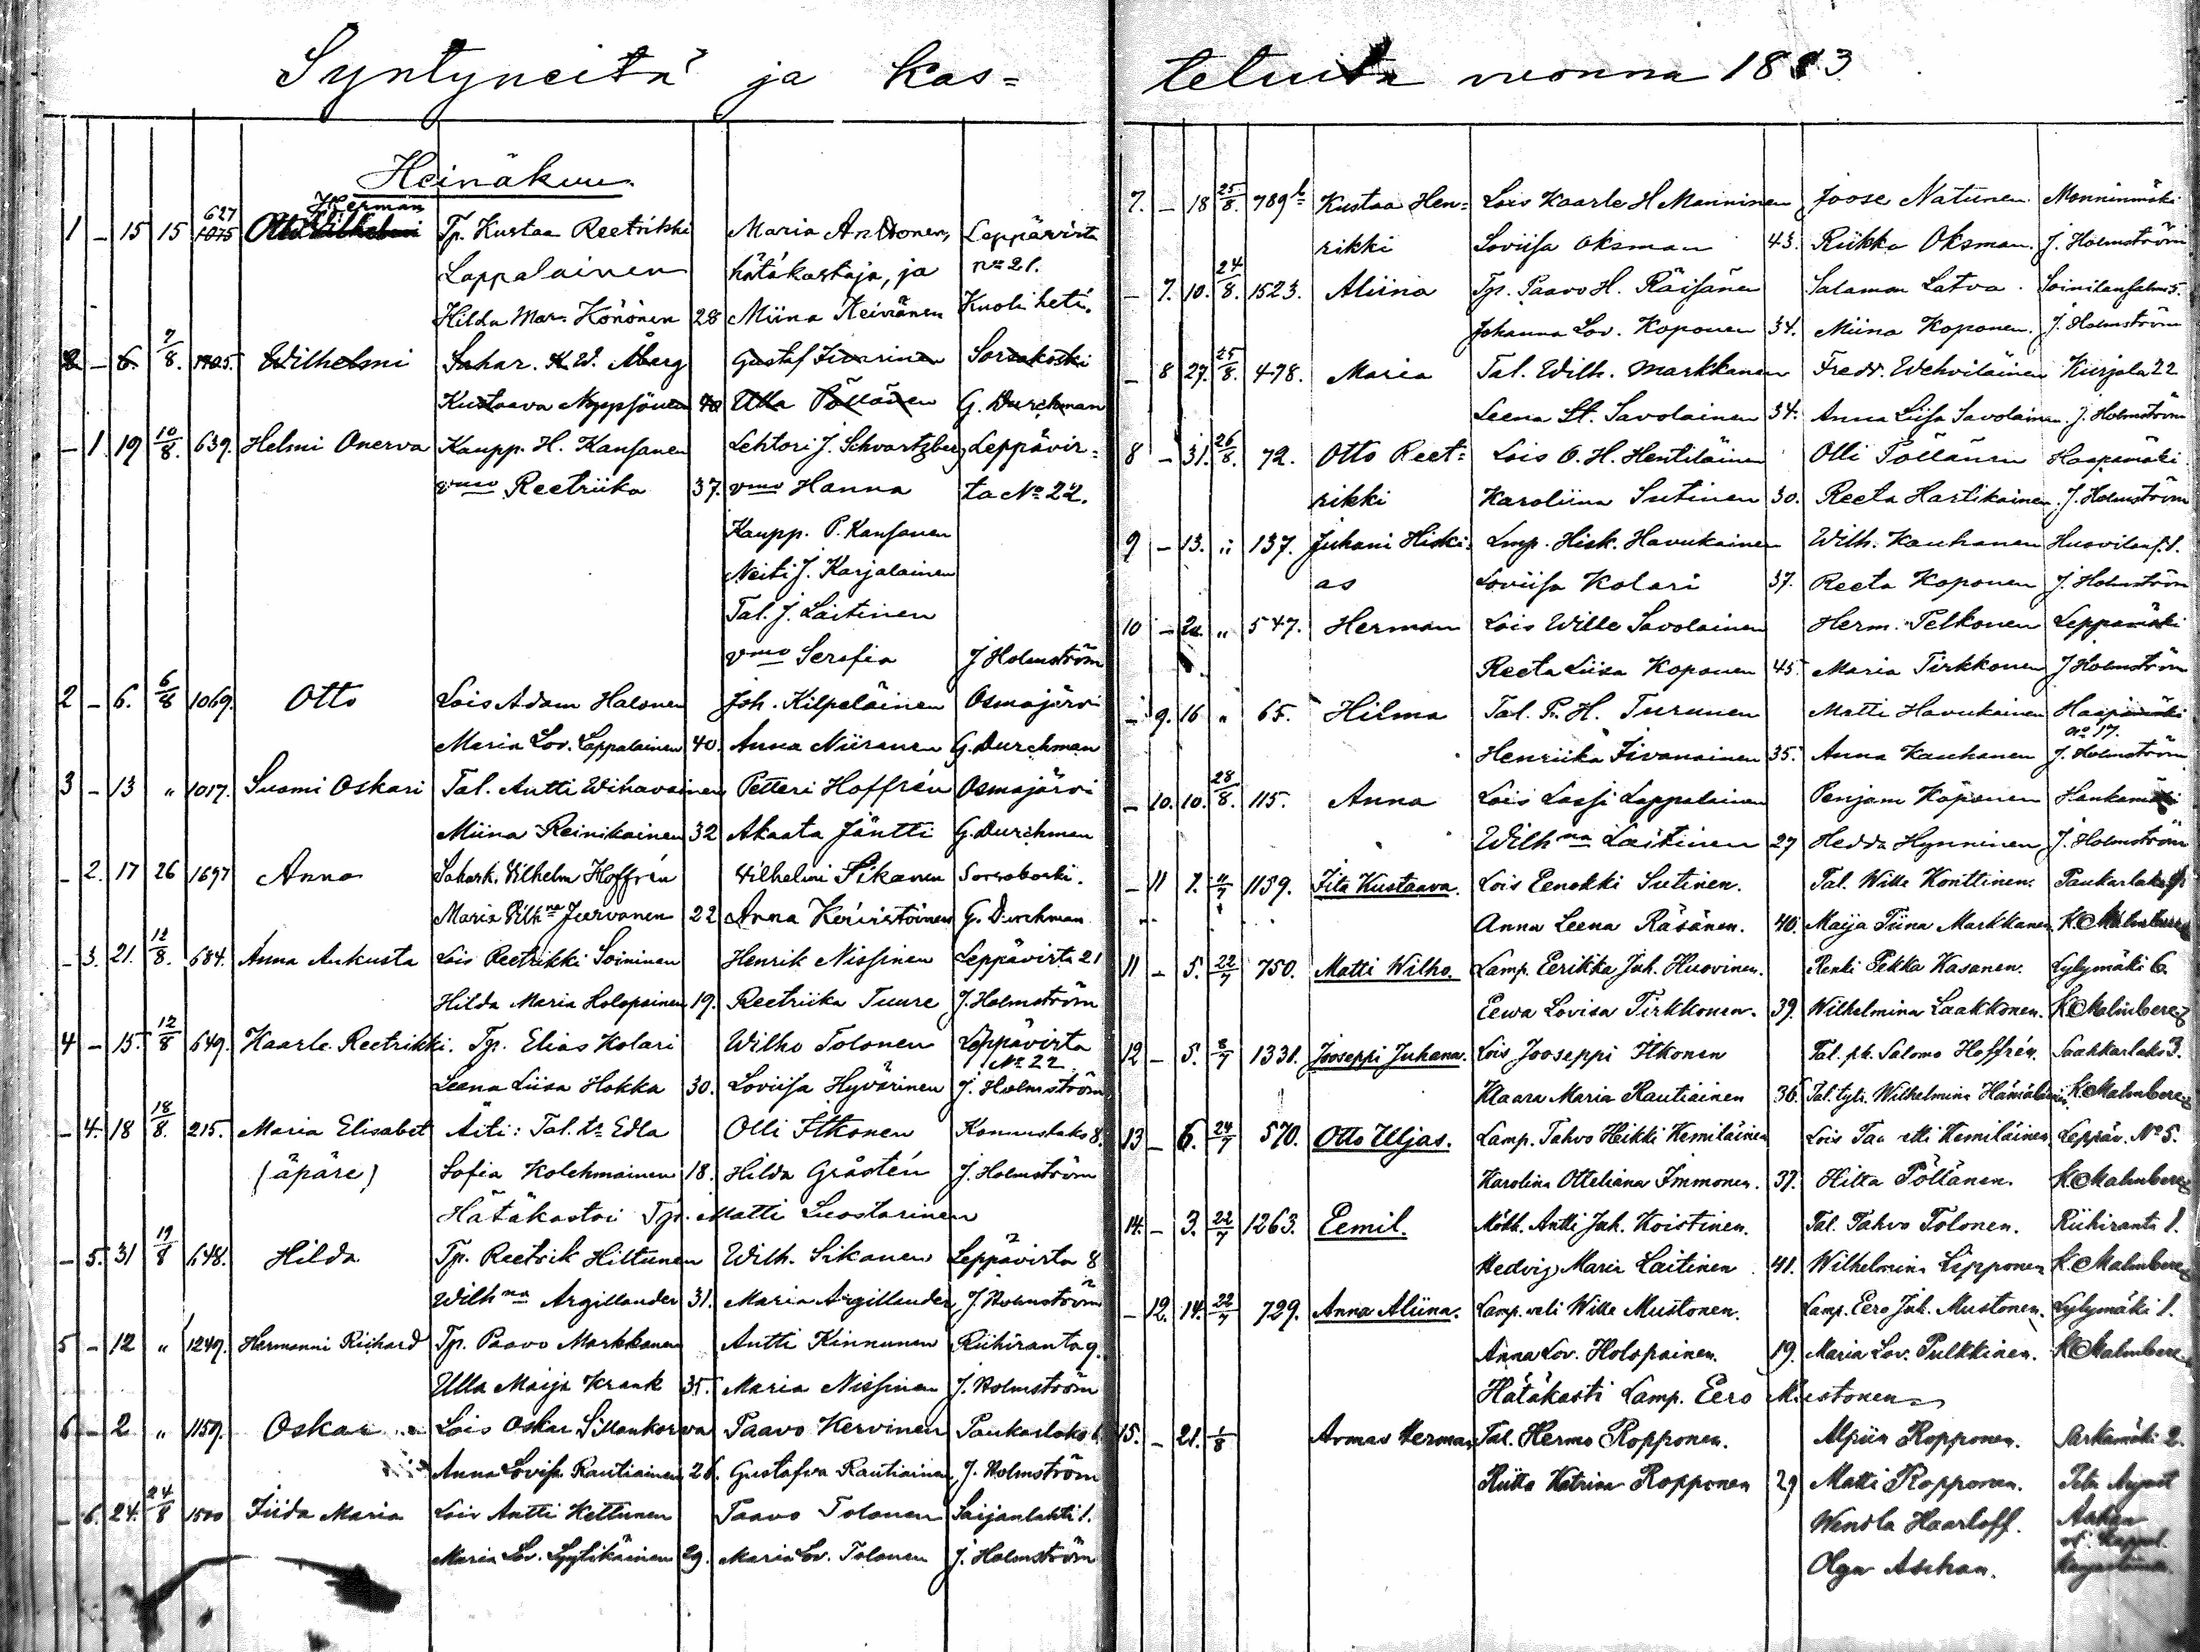 Syntyneitä ja kas=
Heinäkuu.
Herman
627
1 – 15 15 1075 Otto Wilhelmi Tp. Kustaa Reetrikki Maria Anttonen, Leppävirta
Lappalainen hätäkastaja, ja No 21.
Hilda Mar. Könönen 28 Miina Keinänen Kuoli heti.
2 – 6. 7/8. 1725. Wilhelmi Sahar. K. W. Åberg Gustaf Iivarinen Sorsakoski
Kustaava Nyppönen 40 Ulla Pöllänen G. Durchman
– 1. 19 10/8. 639. Helmi Onerva Kaupp. H. Kansanen Lehtori J. Schvartzberg Leppävir=
vmo Reetriika 37. vmo Hanna ta No 22.
Kaupp. P. Kansanen
Neiti J. Karjalainen
Tal. J. Laitinen
vmo Serafia J Holmström
2 – 6. 6/8 1069. Otto Lois Adam Halonen Joh. Kilpeläinen Osmajärvi
Maria Lov. Lappalainen 40. Anna Niiranen G. Durchman
3 – 13 " 1017. Suomi Oskari Tal. Antti Wihavainen Petteri Hoffrén Osmajärvi
Miina Reinikainen 32 Akaata Jäntti G. Durchman
– 2. 17 26 1697 Anna Sahark. Vilhelm Hoffrén Vilhelmi Sikanen
Maria Vilhna 22 Anna G. Durchman
– 3. 21. 12/8. 684. Anna Aukusta Lois Reetrikki Soininen Henrik Nissinen Leppävirta 21
Hilda Maria Holopainen 19. Reetriika Tuure J. Holmström
4 – 15. 12/8 649. Kaarle Reetrikki. Tp. Elias Kolari Wilho Tolonen Leppävirta
No 22
Leena Liisa Hokka 30. Loviisa Hyvärinen J. Holmström
– 4. 18 18/8. 215. Maria Elisabet Äiti: Tal. tr Edla Olli Itkonen Konnuslaks 8.
(äpäre) Sofia Kolehmainen 18. Hilda Gråstén J. Holmström
Hätäkastoi Tp. Matti Luostarinen
– 5. 31 19/8 648. Hilda Tp. Reetrik Hiltunen Wilh. Sikanen Leppävirta 8
Wilhna Argillander 31. Maria Argillander J. Holmström
5 – 12 " 1249. Hermanni Riihard Tp. Paavo Markkanen Antti Kinnunen Riihiranta 9.
Ulla Maija Krank 35. Maria Nissinen J. Holmström
6 – 2 " 1159. Oskar Lois Oskar Sillankorva Paavo Kervinen Paukarlaks 6
Anna Lovisa Rautiainen 26. Gustafva Rautiainen J. Holmström
– 6. 24. 24/8 1500 Iida Maria Lois Antti Kettunen Paavo Tolonen Saijanlahti 1.
Maria Lov. Lyytikäinen 29. Maria Lov. Tolonen J. Holmström
teluita vuonna 1883
7. – 18 25/8. 789b Kustaa Hen= Lois Kaarle H Manninen Joose Natunen Monninmäki
rikki Loviisa Oksman 43. Riikka Oksman. J. Holmström
– 7. 10. 24/8. 1523. Aliina Tp. Paavo H. Räisänen Salamon Latva. Soinilansalmi 5.
Johanna Lov. Koponen 34. Miina Koponen. J. Holmström
– 8 27. 25/8. 478. Maria Tal. Wilh. Markkanen Fredr. Wehviläinen Kurjala 22
Leena St. Savolainen 34. Anna Liisa Savolainen. J. Holmström
8 – 31. 26/8. 72. Otto Reet= Lois O. H. Hentiläinen Olli Pöllänen Haapamäki
rikki Karoliina Sutinen 30. Reeta Hartikainen. J. Holmström
9 – 13. " 137. Juhani Hiski= Lmp. Hisk. Havukainen Wilh. Kauhanen Huovilans. 1.
as Loviisa Kolari 37. Reeta Koponen J. Holmström
10 – " 547. Herman Lois Wille Savolainen Herm. Pelkonen Leppämäki
Reeta Liisa Koponen 45. Maria Tirkkonen J Holmström
– 9. 16 " 65. Hilma Tal. P. H. Turunen Matti Havukainen Haapamäki
no 17.
Henriika Iivanainen 35. Anna Kauhanen J. Holmström
– 10. 10. 28/8. 115. Anna Lois Lassi Lappalainen Penjam Koponen Hankamäki
Wilhna Laitinen 27 Hedda Hynninen J. Holmström
– 11 7. 1159. Iita Kustaava. Lois Eenokki Sutinen. Tal. Wille Konttinen. Paukarlaks 9.
Anna Leena Räsänen. 40. Maija Tiina Markkanen K Malmberg
11 – 5. 22/7 750. Matti Wilho. Lamp. Eerikka Juh. Huovinen. Renki Pekka Kasanen. Lylymäki 6.
Eewa Lovisa Tirkkonen. 39. Wilhelmina Laakkonen. K Malmberg
12 – 5. 8/7 1331. Jooseppi Juhana. Lois Jooseppi Itkonen Tal. pk. Salomo Hoffrén. Saahkarlaks 3.
Klaara Maria Rautiainen 36. Tal. tytr. Wilhelmina Hämäläinen. K Malmberg
13 – 6. 24/7 570. Otto Uljas. Lamp. Tahvo Heikki Kemiläinen Lois Taavetti Kemiläinen Leppäv. No 5.
Karolina Otteliana Immonen. 37. Hilla Pöllänen. K Malmberg
14. – 3. 22/7 1263. Eemil. Mökk. Antti Juh. Koistinen. Tal. Tahvo Tolonen. Riihiranta 1.
Hedvig Maria Laitinen 41. Wilhelmina Lipponen K Malmberg
– 12. 14. 22/7 729. Anna Aliina. Lamp. veli Wille Mustonen. Lamp. Eero Juh. Mustonen. Lylymäki 1.
Anna Lov. Holopainen. 19. Maria Lov. Pulkkinen. K Malmberg
Hätäkasti Lamp. Eero Mustonen
15. – 21. 1/8 Armas Herman Tal. Hermo Ropponen. Alpiin Ropponen. Sarkamäki 2.
Riitta Katrina Ropponen 29 Matti Ropponen.
Wendla Haarloff.
Olga Aschan.